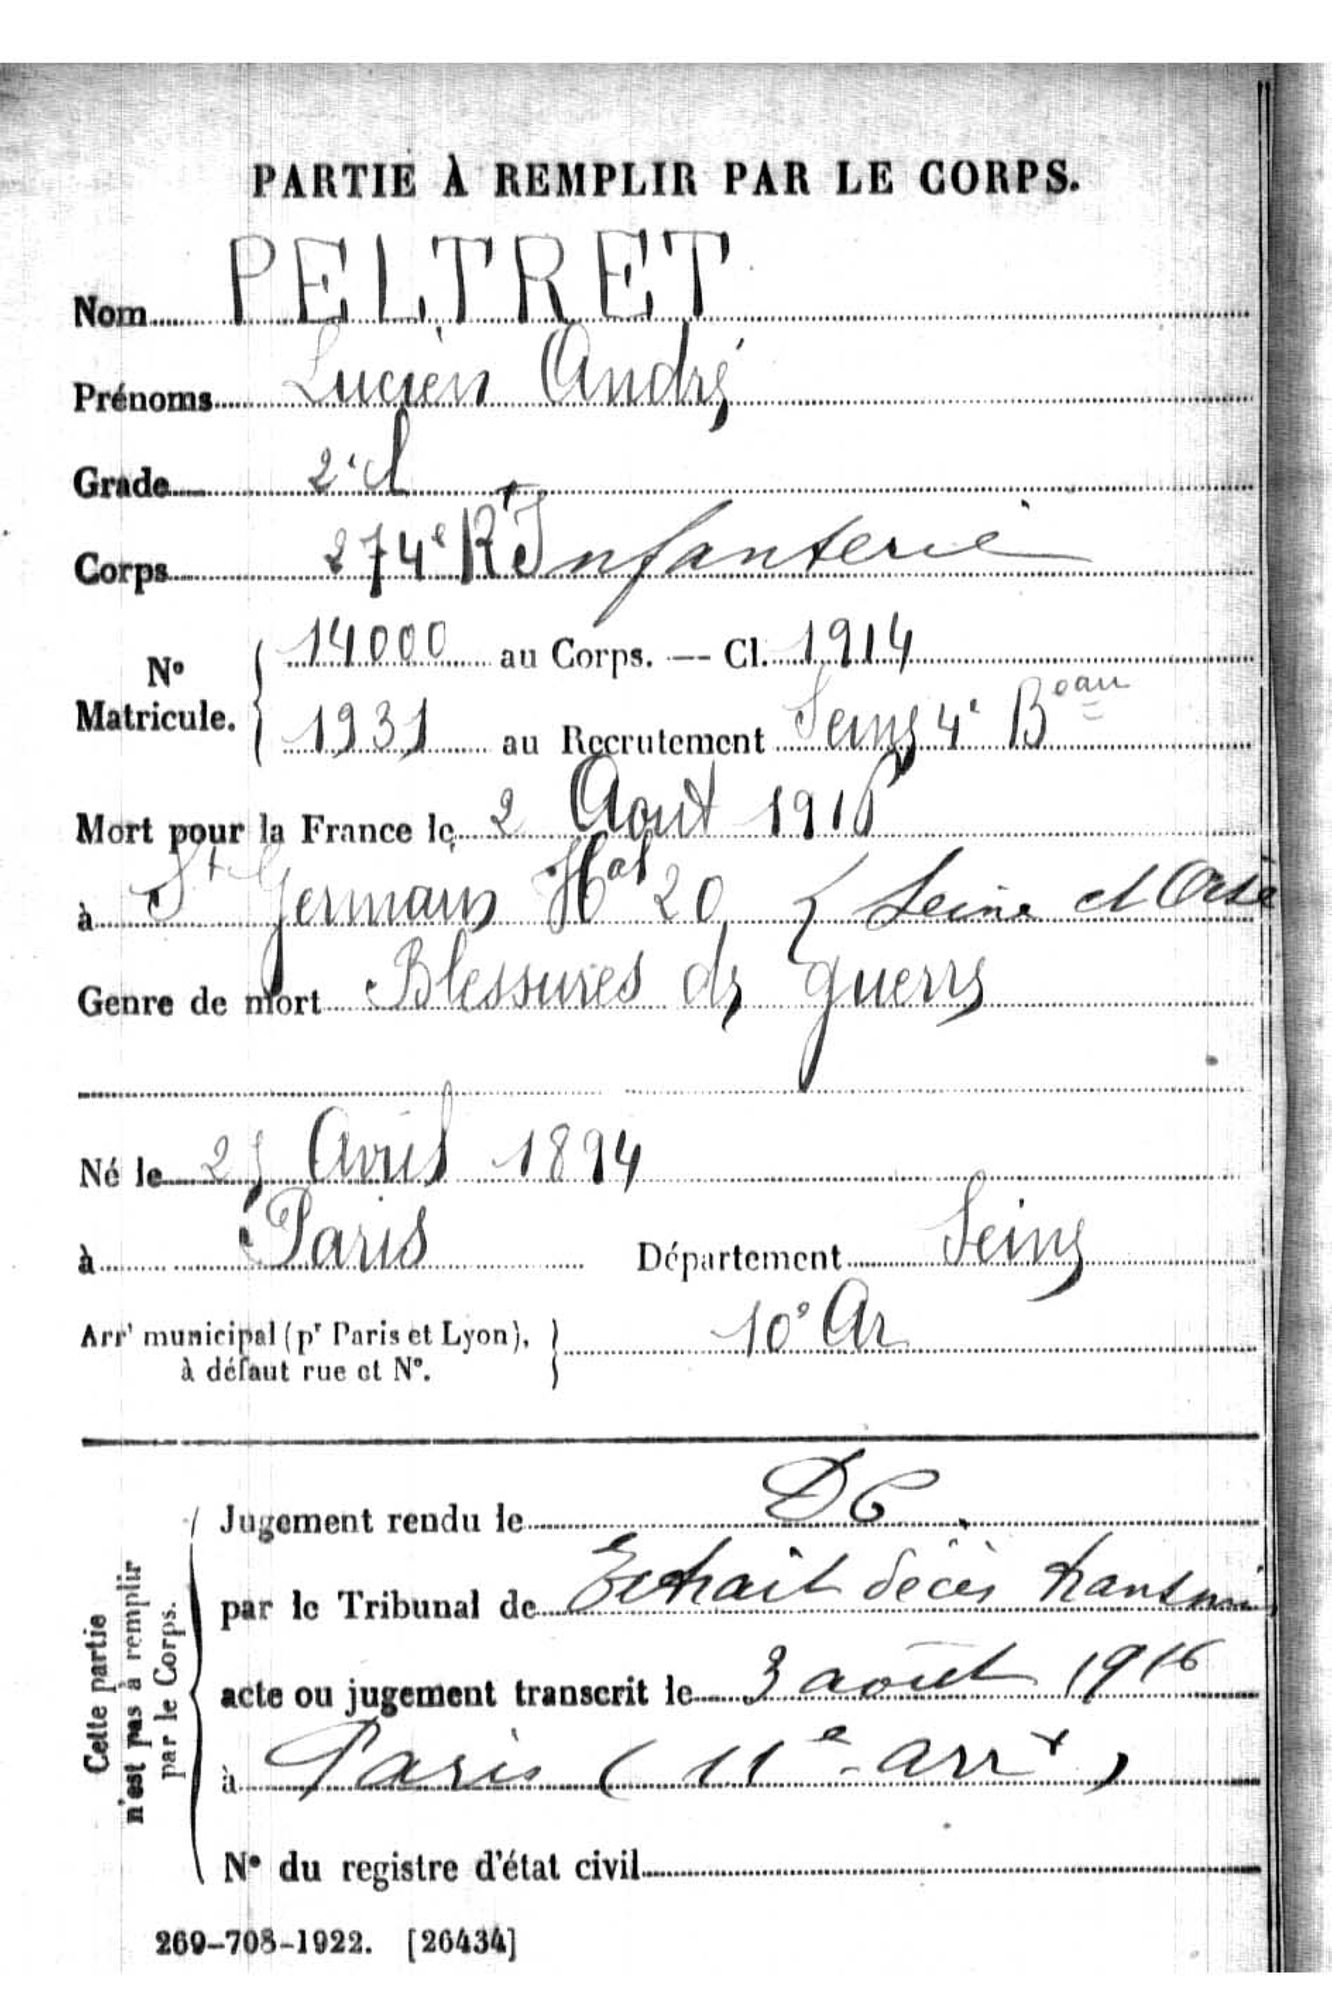 PARTIE À REMPLIR PAR LE CORPS.
Nom PELTRET
Prénoms Lucien André
Grade 2e cl
Corps 274e Rt Infanterie
No Matricule. 14000 au Corps. — Cl. 1914
1931 au Recrutement Seine 4e Beau
Mort pour la France le 2 Aout 1916
à St Germain Hal 20 { Seine et Oise
Genre de mort Blessures de guerre
Né le Avril 1894
à Paris Département Seine
Arrt municipal (pr Paris et Lyon), à défaut rue et No. } 10e Ar
Cette partie n'est pas à remplir par le Corps.
Jugement rendu le DC
par le Tribunal de Extrait décès transmis
acte ou jugement transcrit le 3 août 1916
à Paris (11e arrt)
No du registre d'état civil
269-708-1922. [26434]